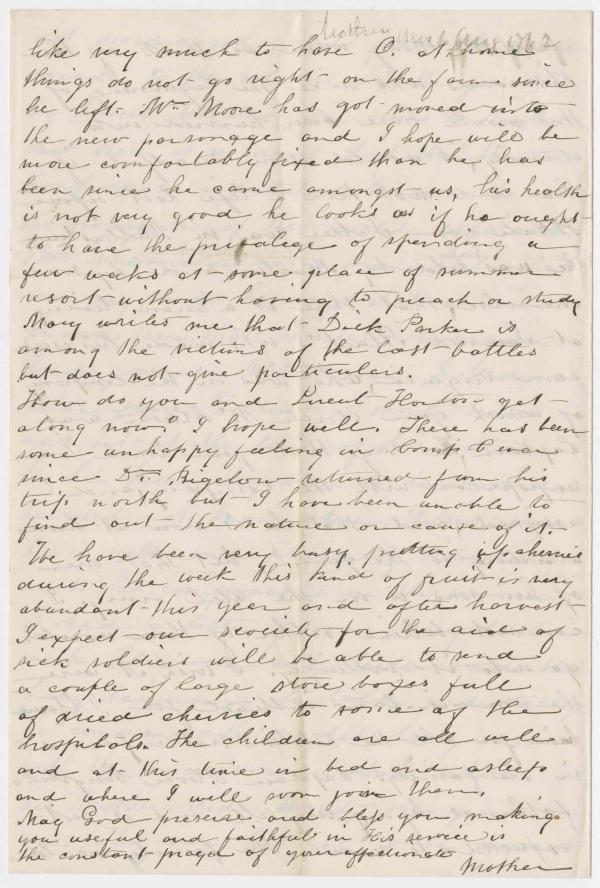 Mother
like very much to have O. at home
things do not go right on the farm since
he left. Mr. Moore has got moved into
the new parsonage and I hope will be
more comfortably fixed than he has
been since he came amongst us, his health
is not very good he looks as if he ought
to have the privalege of spending a
few weeks at some place of summer
resort without having to preach or study
Mary writes me that Dick Parker is
among the victims of the last battles
but does not give particulars.
How do you and Lieut Horton get
along now? I hope well. There has been
some unhappy feeling in Comp C ever
since Dr. Bigelow returned from his
trip north but I have been unable to
find out the nature or cause of it.
We have been very busy putting up cherries
during the week this kind of fruit is very
abundant this year and after harvest
I expect our society for the aid of
sick soldiers will be able to send
a couple of large store boxes full
of dried cherries to some of the
hospitals. The children are all well
and at this time in bed and asleep
and where I will soon join them.
May God preserve and bless you making
you useful and faithful in His service is
the constant prayer of your affectionate
Mother